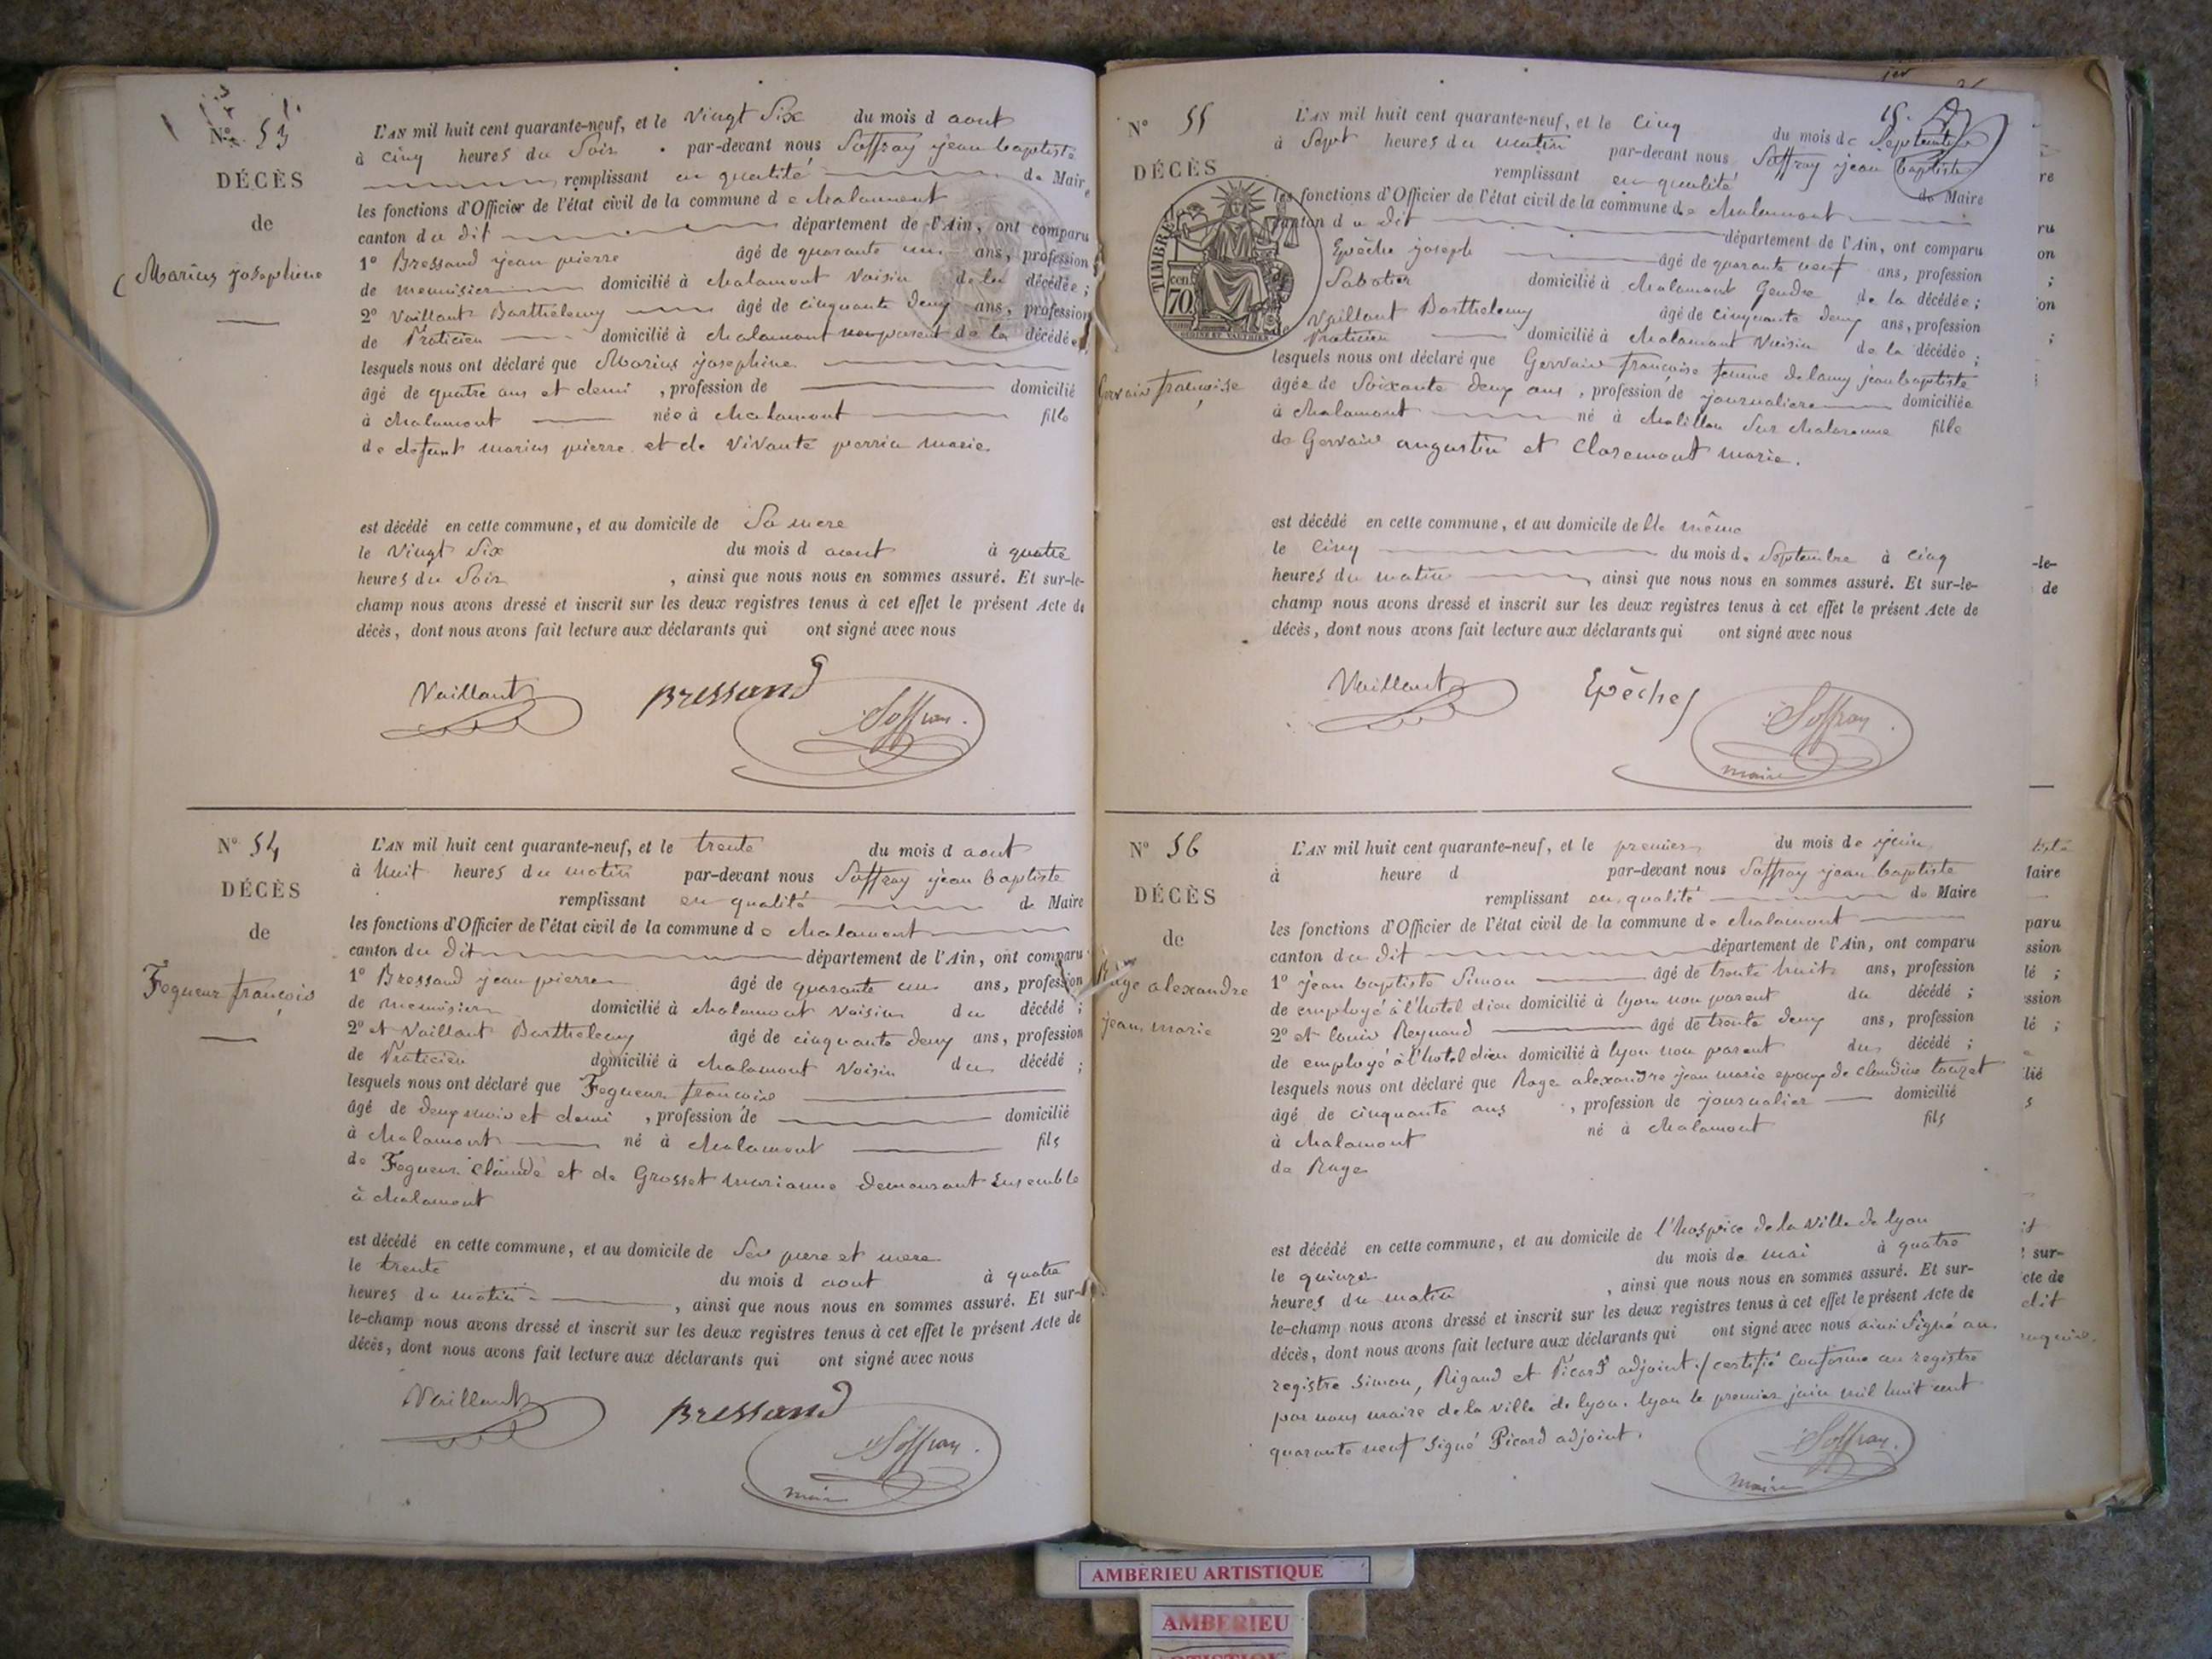 N° 53
DÉCÈS
de
Marius josephine
L'AN mil huit cent quarante-neuf, et le Vingt Six du mois d aout
à cinq heures du Soir par-devant nous Soffray jean baptiste
remplissant en qualité de Maire
les fonctions d'Officier de l'état civil de la commune de chalamont
canton du dit département de l'Ain, ont comparu
1° Bressand jean pierre âgé de quarante un ans, profession
de menuisier domicilié à chalamont Voisin de la décédée ;
2° Vaillant Barthelemy âgé de cinquante deux ans, profession
de Praticien domicilié à chalamont non parent de la décédée
lesquels nous ont déclaré que Marius josephine
âgé de quatre ans et demi , profession de domicilié
à chalamont née à chalamont fille
de defunt marius pierre et de Vivante perrin marie
est décédé en cette commune, et au domicile de Sa mere
le Vingt Six du mois d aout à quatre
heures du Soir , ainsi que nous nous en sommes assuré. Et sur-le-
champ nous avons dressé et inscrit sur les deux registres tenus à cet effet le présent Acte de
décès, dont nous avons fait lecture aux déclarants qui ont signé avec nous
Vaillant Bressand
Soffray
N° 54
DÉCÈS
de
Fegueur françois
L'AN mil huit cent quarante-neuf, et le trente du mois d aout
à huit heures du matin par-devant nous Soffray jean baptiste
remplissant en qualité de Maire
les fonctions d'Officier de l'état civil de la commune de chalamont
canton du dit département de l'Ain, ont comparu
1° Bressand jean pierre âgé de quarante un ans, profession
de menuisier domicilié à chalamont Voisin du décédé ;
2° et Vaillant Barthelemy âgé de cinquante deux ans, profession
de Praticien domicilié à chalamont Voisin du décédé ;
lesquels nous ont déclaré que Fegueur francois
âgé de deux mois et demi , profession de domicilié
à chalamont né à chalamont fils
de Fegueur Claude et de Grosset marianne demeurant ensemble
à chalamont
est décédé en cette commune, et au domicile de Ses pere et mere
le trente du mois d aout à quatre
heures du matin , ainsi que nous nous en sommes assuré. Et sur-
le-champ nous avons dressé et inscrit sur les deux registres tenus à cet effet le présent Acte de
décès, dont nous avons fait lecture aux déclarants qui ont signé avec nous
Vaillant Bressand
Soffray
maire
N° 55
DÉCÈS
TIMBRE
70
Gervais françoise
15.
L'AN mil huit cent quarante-neuf, et le cinq du mois de Septembre
à Sept heures du matin par-devant nous Soffray jean baptiste
remplissant en qualité de Maire
les fonctions d'Officier de l'état civil de la commune de chalamont
canton du dit département de l'Ain, ont comparu
Epêche joseph âgé de quarante neuf ans, profession
Sabotier domicilié à chalamont Gendre de la décédée ;
Vaillant Barthelemy âgé de cinquante deux ans, profession
Praticien domicilié à chalamont Voisin de la décédée ;
lesquels nous ont déclaré que Gervais francoise femme delamy jean baptiste
âgée de Soixante deux ans , profession de journaliere domiciliée
à chalamont né à chatillon Sur chalaronne fille
de Gervais augustin et Claremont marie.
est décédé en cette commune, et au domicile de lle même
le cinq du mois de Septembre à cinq
heures du matin ainsi que nous nous en sommes assuré. Et sur-le-
champ nous avons dressé et inscrit sur les deux registres tenus à cet effet le présent Acte de
décès, dont nous avons fait lecture aux déclarants qui ont signé avec nous
Vaillant Epêche
Soffray
maire
N° 56
DÉCÈS
de
Rage alexandre
jean marie
L'AN mil huit cent quarante-neuf, et le premier du mois de juin
à heure d par-devant nous Soffray jean baptiste
remplissant en qualité de Maire
les fonctions d'Officier de l'état civil de la commune de chalamont
canton du dit département de l'Ain, ont comparu
1° jean baptiste Simon âgé de trente huit ans, profession
de employé à l'hotel dieu domicilié à lyon non parent du décédé ;
2° et louis Reynaud âgé de trente deux ans, profession
de employé à l'hotel dieu domicilié à lyon non parent du décédé ;
lesquels nous ont déclaré que Rage alexandre jean marie epoux de claudine touzet
âgé de cinquante ans , profession de journalier domicilié
à chalamont né à chalamont fils
de Rage
est décédé en cette commune, et au domicile de l'hospice de la Ville de lyon
le quinze du mois de mai à quatre
heures du matin , ainsi que nous nous en sommes assuré. Et sur-
le-champ nous avons dressé et inscrit sur les deux registres tenus à cet effet le présent Acte de
décès, dont nous avons fait lecture aux déclarants qui ont signé avec nous ainsi Signé au
registre Simon, Rigaud et Picard adjoint / certifié conforme au registre
par nous maire de la ville de lyon. lyon le premier juin mil huit cent
quarante neuf Signé Picard adjoint.
Soffray
maire
AMBERIEU ARTISTIQUE
AMBERIEU
ARTISTIQUE